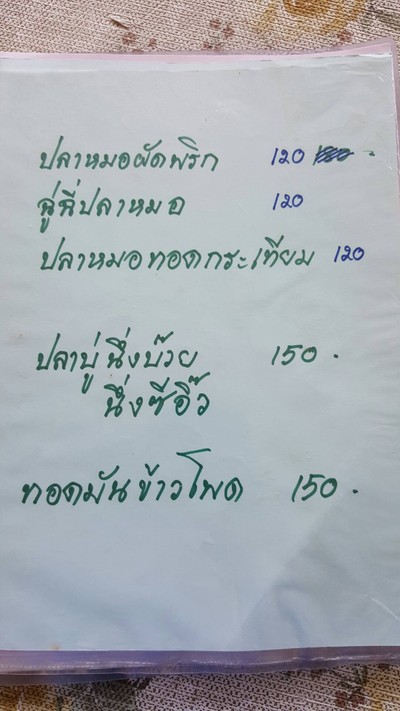 ปลาหมอผัดพริก 120
ฉู่ฉี่ปลาหมอ 120
ปลาหมอทอดกระเทียม 120
ปลาบู่นึ่งบ๊วย 150.
นึ่งซีอิ๊ว
ทอดมันข้าวโพด 150.